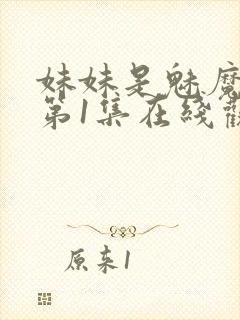 妹妹是魅魔
第1集在线
原来1